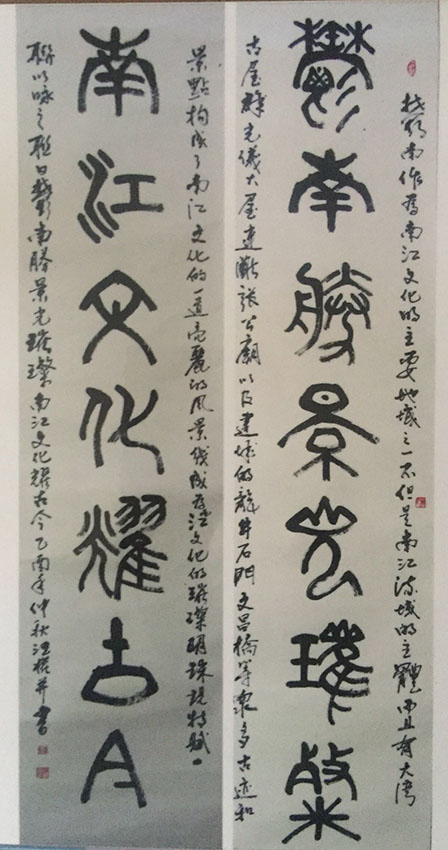 我郁南作為南江文化的主要地域之一不但是南江流域的主體而且有大湾
鬱南勝景光璀璨
古屋群光儀大屋連灘張公廟以及建城的龍井石門文昌橋等眾多古迹和
景點构成了南江文化的一道亮麗的风景线成為江文化的璀璨明珠現特賦一
南江文化耀古今
聯以咏之聯曰鬱南勝景光璀璨南江文化耀古今乙酉年仲秋江并書